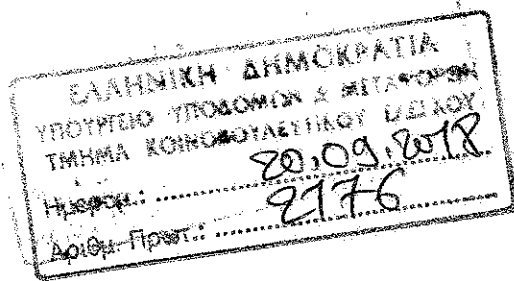 ΕΛΛΗΝΙΚΗ ΔΗΜΟΚΡΑΤΙΑ
ΥΠΟΥΡΓΕΙΟ ΥΠΟΔΟΜΩΝ & ΜΕΤΑΦΟΡΩΝ
ΤΜΗΜΑ ΚΟΙΝΟΒΟΥΛΕΥΤΙΚΟΥ ΕΛΕΓΧΟΥ
Ημερομ.: 20.09.2018
Αριθμ. Πρωτ.: 2176